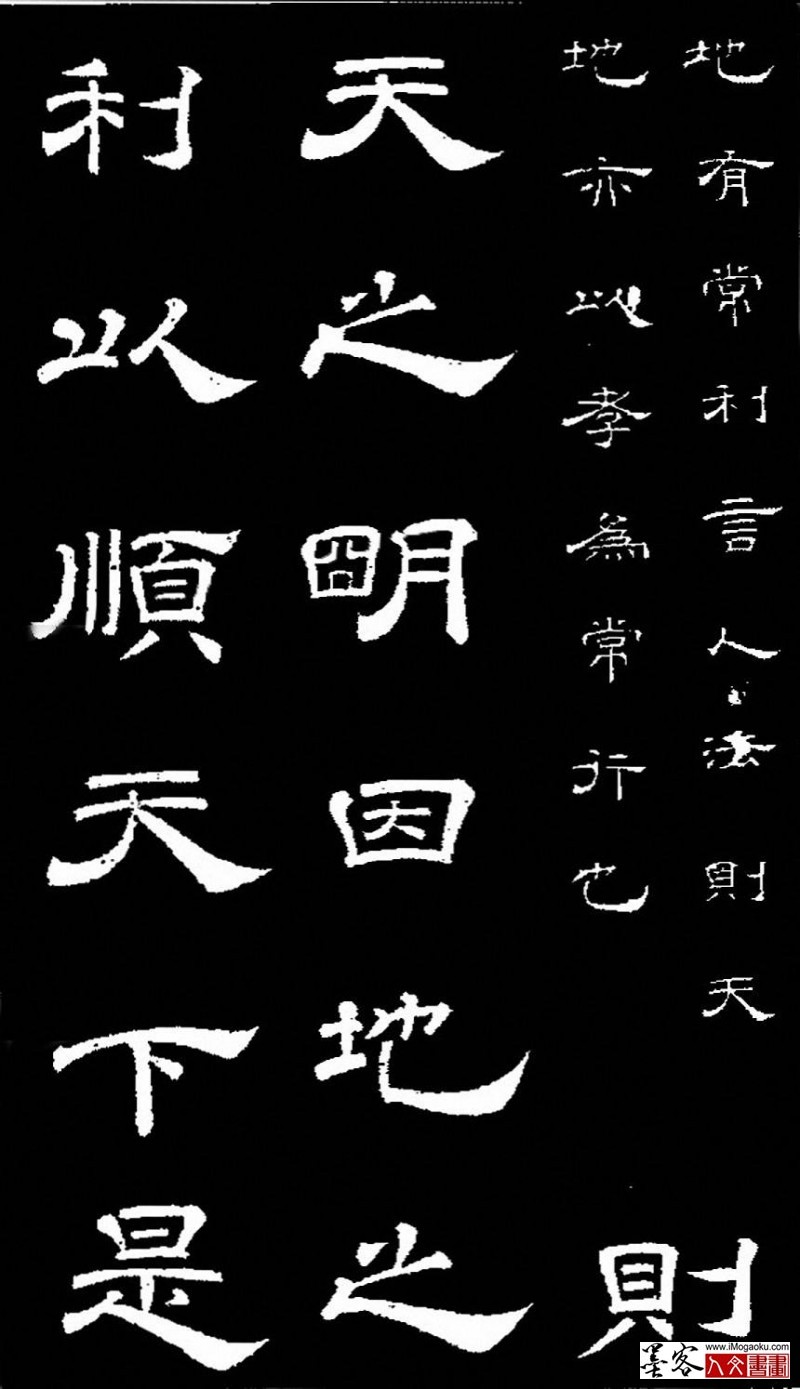 地有常利言人法則天
地亦以孝為常行也
則
天之明因地之
利以順天下是
www.iMogaoku.com
墨客 人文書畫